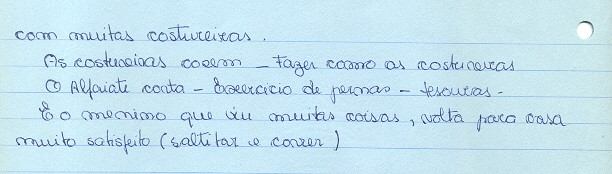 com muitas costureiras.
As costureiras cosem – Fazer como as costureiras
O Alfaiate corta – Exercicio de pernas – tesouras –
E o menino que viu muitas coisas, volta para casa
muito satisfeito (saltitar e correr)